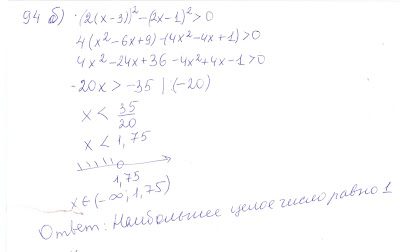 94 б) (2(x-3))²-(2x-1)²>0
4(x²-6x+9)-(4x²-4x+1)>0
4x²-24x+36-4x²+4x-1>0
-20x>-35 |:(-20)
x < 35/20
x < 1,75
1,75
x∈(-∞; 1,75)
Ответ: Наибольшее целое число равно 1